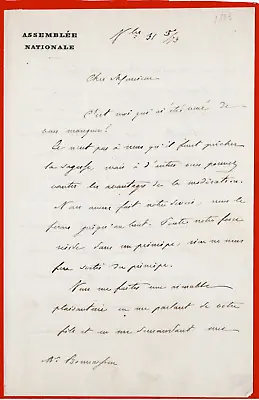 ASSEMBLÉE
NATIONALE
31
Cher Monsieur
C'est moi qui ai été navré de
vous manquer!
Ce n'est pas à nous qu'il faut prêcher
la sagesse mais à d'autres vous pouvez
vanter les avantages de la modération.
Nous avons fait notre devoir, nous le
ferons jusqu'au bout. Toute notre force
réside dans un principe, rien ne nous
fera sortir du principe.
Vous me faites une aimable
plaisanterie en me parlant de votre
fils et en me demandant une
Mr